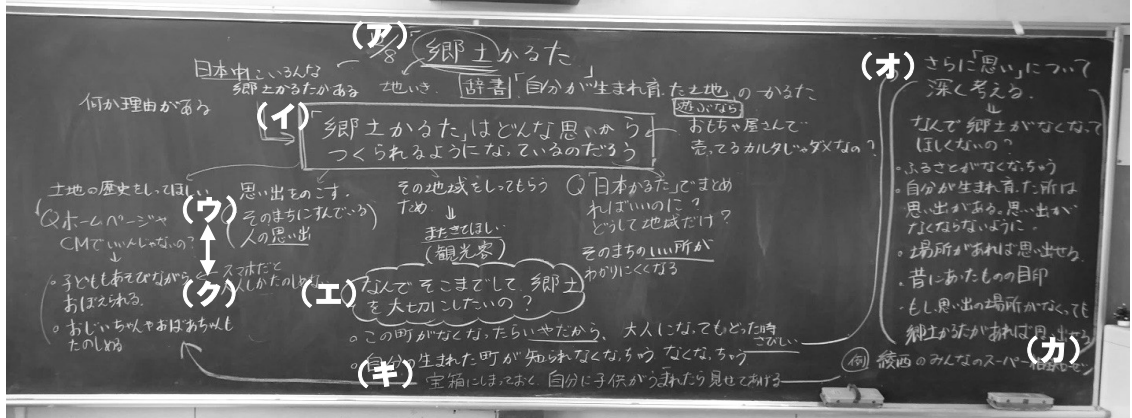 (ア)
/8
「郷土かるた」
日本中にいろんな
郷土かるたがある
地いき
辞書「自分が生まれ育った土地」の一かるた
何か理由がある
(イ)
「郷土かるた」はどんな思いから
つくられるようになっているのだろう
遊ぶなら
おもちゃ屋さんで
売ってるカルタじゃダメなの?
土地の歴史をしってほしい
Qホームページや
CMでいいんじゃないの?
(ウ)
(ク)
・子どももあそびながら
おぼえられる。
・おじいちゃんやおばあちゃんも
たのしめる
スマホだと
思い出をのこす。
そのまちにすんでいる
人の思い出
その地域をしってもらう
ため
またきてほしい
(観光客)
Q「日本かるた」でまとめ
ればいいのに?
どうして地域だけ?
そのまちのいい所が
わかりにくくなる
(エ)
なんでそこまでして、郷土
を大切にしたいの?
・この町がなくなったらいやだから、大人になってもどった時
さびしい
・自分の生まれた町が知られなくなっちゃう なくなっちゃう
(キ)
宝箱にしまっておく、自分に子供がうまれたら見せてあげる
(オ)
さらに「思い」について
深く考える
なんで郷土がなくなって
ほしくないの?
・ふるさとがなくなっちゃう
・自分が生まれ育った所は
思い出がある。思い出が
なくならないように。
・場所があれば思い出せる。
・昔にあったものの目印
・もし、思い出の場所がなくても
郷土かるたがあれば思い出せる
(カ)
例 綾西のみんなのスーパー